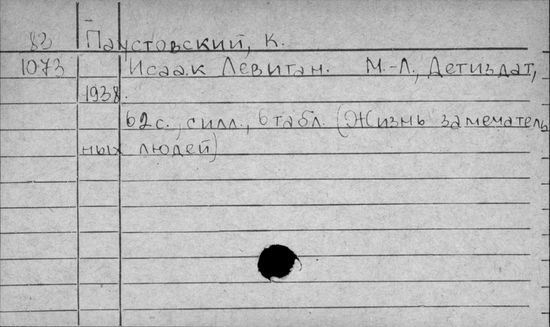 83 Паустовский, К.
1073 Исаак Левитан. М.-Л., Детиздат,
1938.
62 с., с илл., 6 табл. (Жизнь замечатель
ных людей)